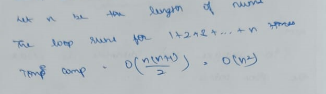 Let n be the length of nums
The loop runs for 1+2+3+...+n times
Time comp = O(n(n+1)/2) = O(n²)